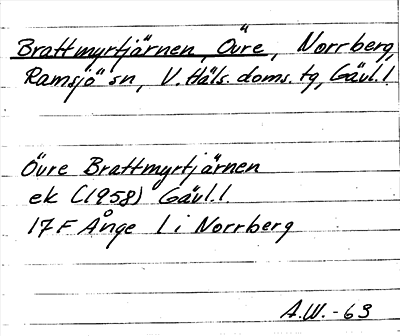 Brattmyrtjärnen, Övre, Norrberg,
Ramsjö sn, V. Häls. doms. tg, Gävl. l.
Övre Brattmyrtjärnen
ek (1958) Gävl. l.
17 F Ånge l i Norrberg
A.W. - 63